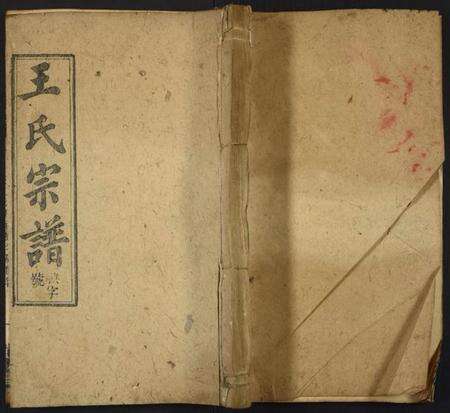 王氏宗譜
字號